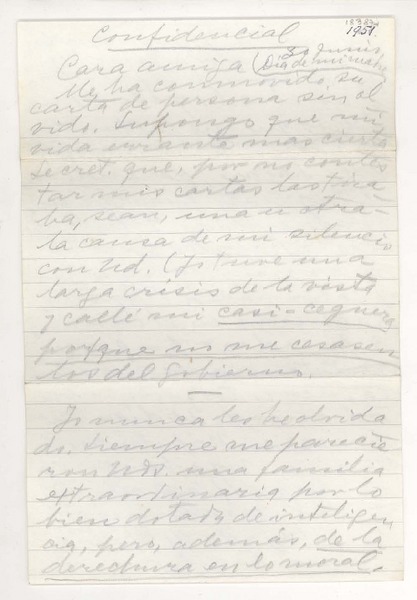 1951.
Confidencial
30 Junio,
Cara amiga (Día de mi
Me ha conmovido su
carta de persona sin ol
vido. Supongo que mi
vida errante mas cierta
secret. que, por no contes
tar mis cartas las tira
ba, sean, una u otra
la causa de mi silencio
con Ud. (Yo tuve una
larga crisis de la vista
y callé mi casi-ceguera
porque no me cesasen
los del Gobierno.
Yo nunca les he olvida
do. Siempre me parecie
ron Uds. una familia
extraordinaria por lo
bien dotada de inteligen
cia, pero, además, de la
derechura en lo moral.